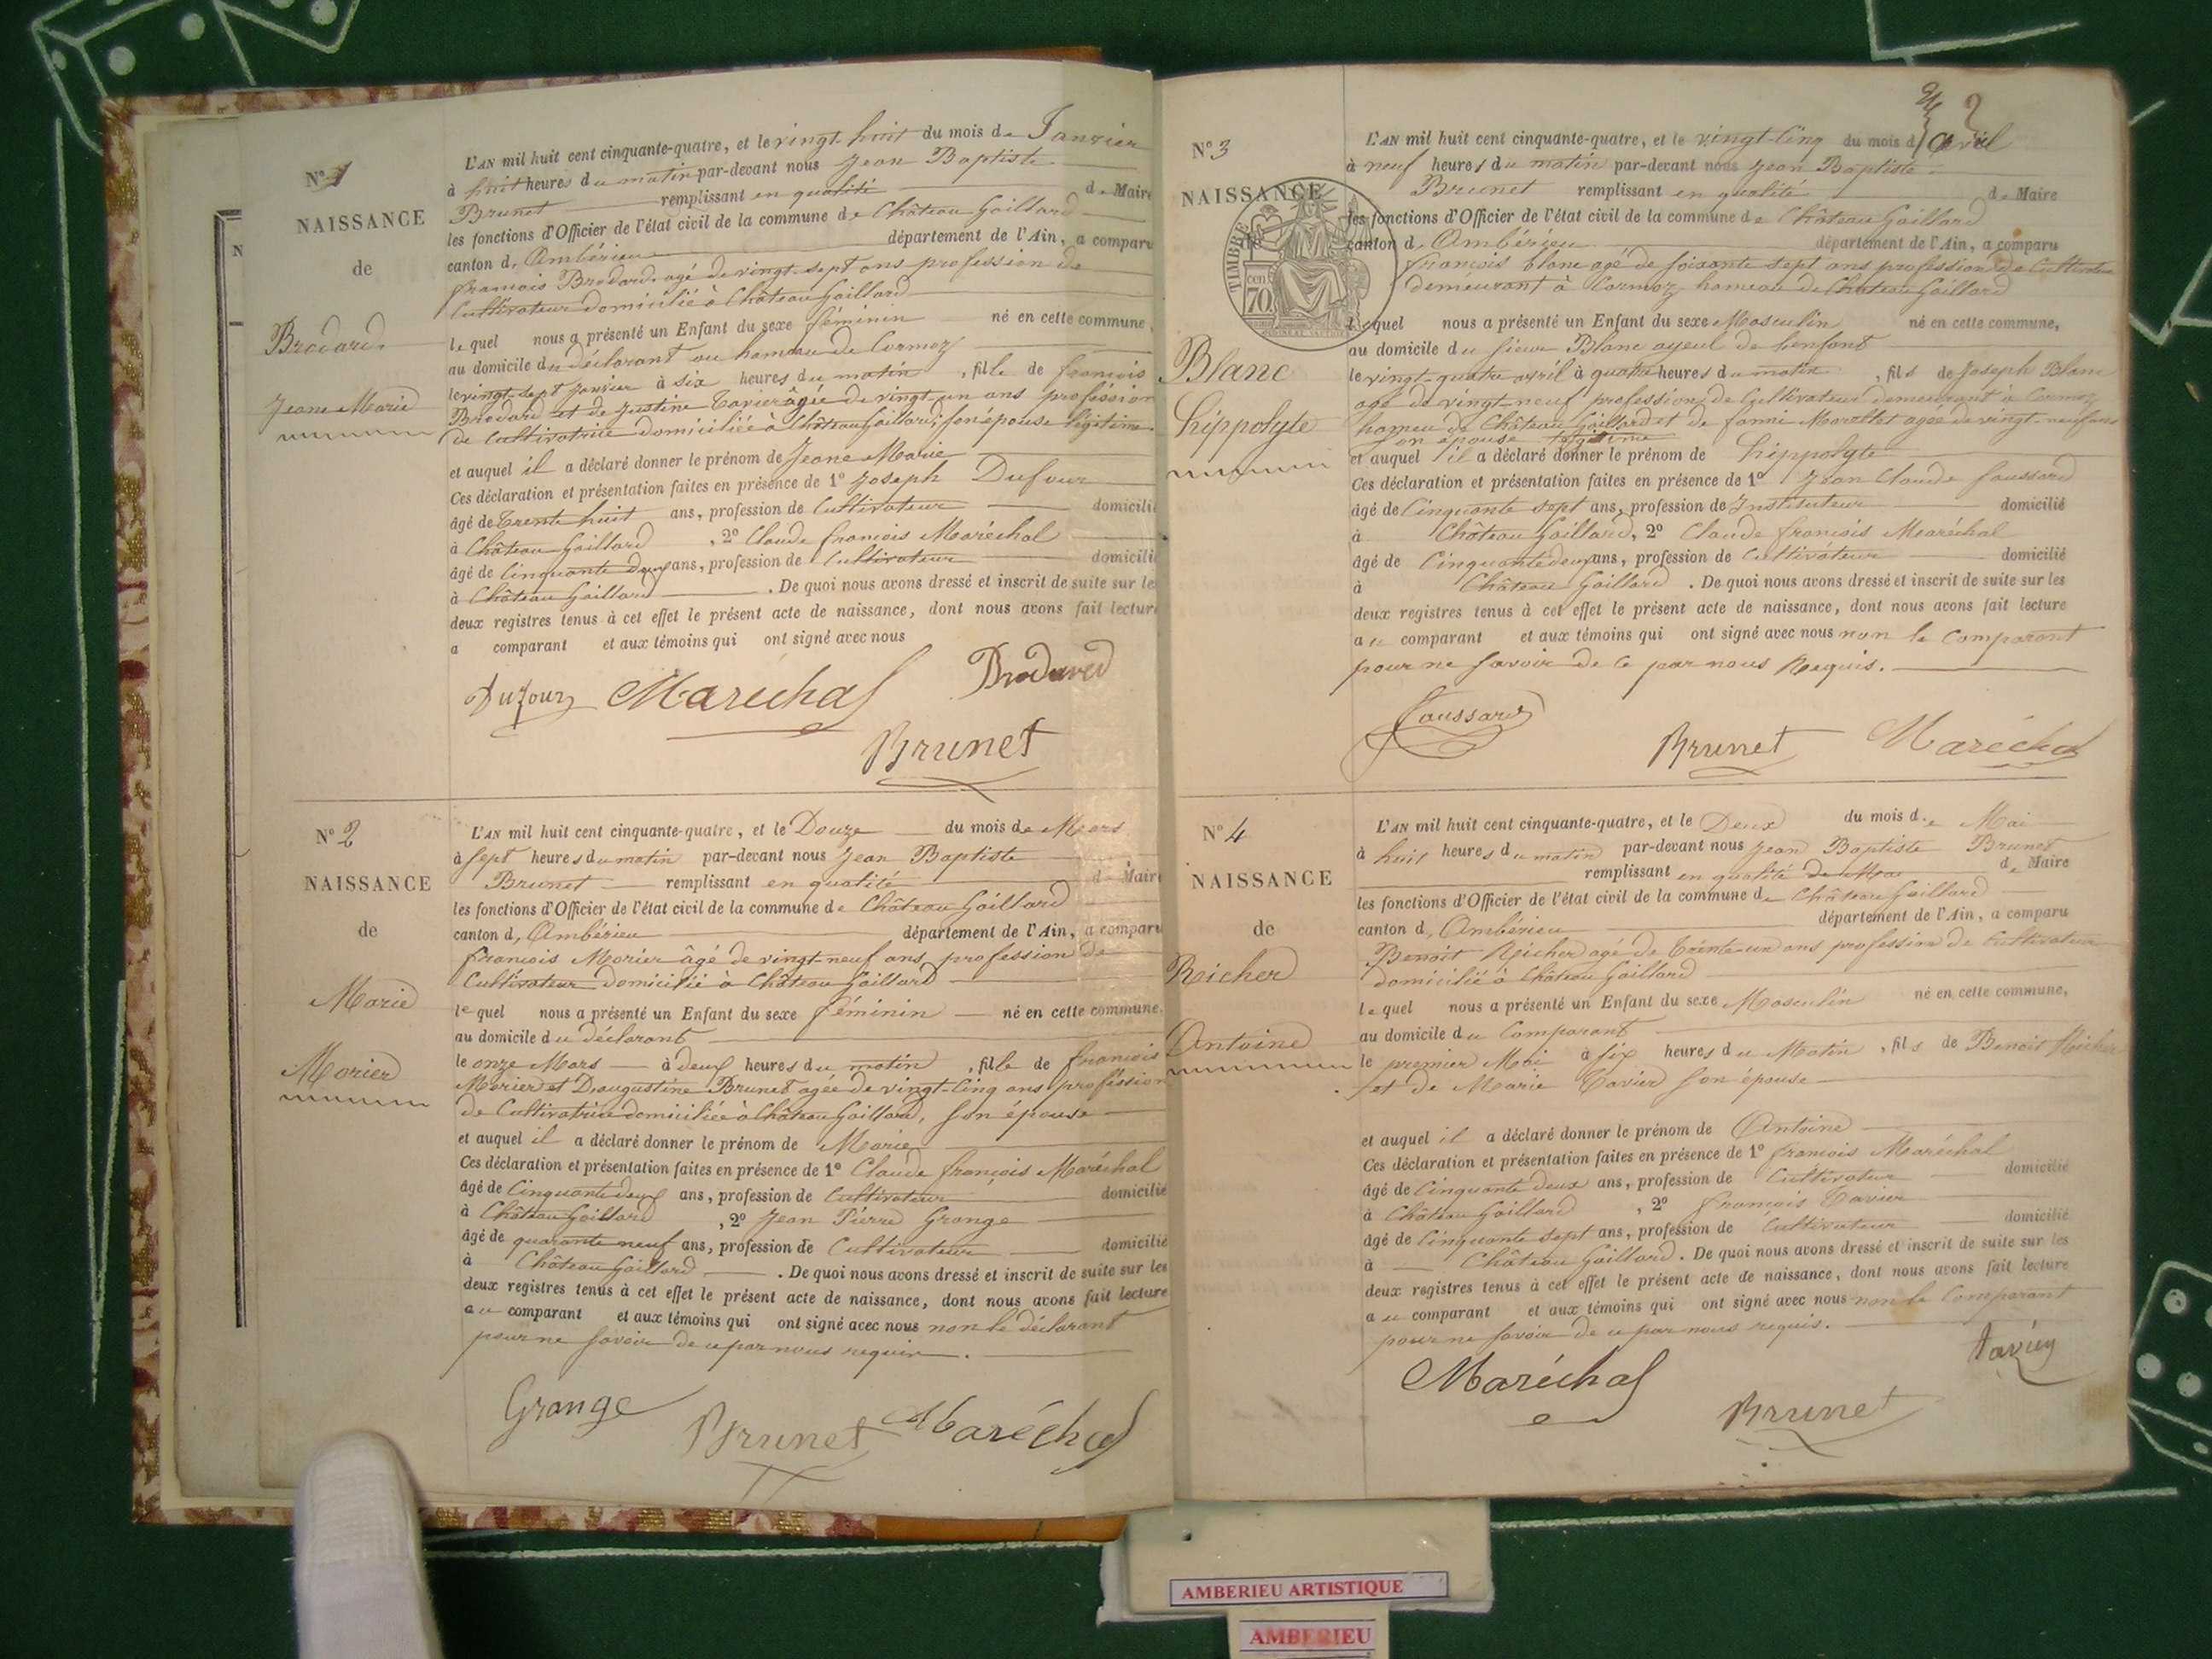 N° 1
NAISSANCE
de
Brodard
Jeane Marie
L'AN mil huit cent cinquante-quatre, et le vingt huit du mois de Janvier
à huit heures du matin par-devant nous Jean Baptiste
Brunet remplissant en qualité de Maire
les fonctions d'Officier de l'état civil de la commune de Château Gaillard
canton d, Ambérieu département de l'Ain, a comparu
francois Brodard agé de vingt-sept ans profession de
Cultivateur domicilié à Château Gaillard
lequel nous a présenté un Enfant du sexe féminin né en cette commune,
au domicile du déclarant au hameau de Cormoz
le vingt-sept Janvier à six heures du matin, fille de francois
Brodard et de Justine Tavier âgée de vingt un ans profession
de Cultivatrice domiciliée à Château Gaillard, son épouse légitime
et auquel il a déclaré donner le prénom de Jeane Marie
Ces déclaration et présentation faites en présence de 1° Joseph Dufour
âgé de trente huit ans, profession de Cultivateur domicilié
à Château Gaillard, 2° Claude francois Maréchal
âgé de Cinquante deux ans, profession de Cultivateur domicilié
à Château Gaillard. De quoi nous avons dressé et inscrit de suite sur les
deux registres tenus à cet effet le présent acte de naissance, dont nous avons fait lecture
a comparant et aux témoins qui ont signé avec nous
Dufour Maréchal Brodard
Brunet
N° 2
NAISSANCE
de
Marie
Morier
L'AN mil huit cent cinquante-quatre, et le Douze du mois de Mars
à sept heures du matin par-devant nous Jean Baptiste
Brunet remplissant en qualité de Maire
les fonctions d'Officier de l'état civil de la commune de Château Gaillard
canton d, Ambérieu département de l'Ain, a comparu
francois Morier âgé de vingt-neuf ans profession de
Cultivateur domicilié à Château Gaillard
lequel nous a présenté un Enfant du sexe féminin né en cette commune,
au domicile du déclarant
le onze Mars à deux heures du matin, fille de francois
Morier et D'augustine Brunet agée de vingt-cinq ans profession
de Cultivatrice domiciliée à Château Gaillard, son épouse
et auquel il a déclaré donner le prénom de Marie
Ces déclaration et présentation faites en présence de 1° Claude françois Maréchal
âgé de Cinquante deux ans, profession de Cultivateur domicilié
à Château Gaillard, 2° Jean Pierre Grange
âgé de quarante neuf ans, profession de Cultivateur domicilié
à Château Gaillard. De quoi nous avons dressé et inscrit de suite sur les
deux registres tenus à cet effet le présent acte de naissance, dont nous avons fait lecture
au comparant et aux témoins qui ont signé avec nous non le déclarant
pour ne savoir de ce par nous requis.
Grange Brunet Maréchal
2
N° 3
NAISSANCE
TIMBRE
70
Blanc
hippolyte
L'AN mil huit cent cinquante-quatre, et le vingt-cinq du mois d'avril
à neuf heures du matin par-devant nous Jean Baptiste
Brunet remplissant en qualité de Maire
les fonctions d'Officier de l'état civil de la commune de Château Gaillard
canton d, Ambérieu département de l'Ain, a comparu
francois blanc agé de soixante sept ans profession de Cultivateur
demeurant à Cormoz hameau de Château Gaillard
lequel nous a présenté un Enfant du sexe Masculin né en cette commune,
au domicile du sieur Blanc ayeul de l'enfant
le vingt-quatre avril à quatre heures du matin, fils de Joseph Blanc
agé de vingt-neuf profession de Cultivateur demeurant à Cormoz
hameu de Château Gaillard et de fanni Marettet agée de vingt-neuf ans
son épouse légitime
et auquel il a déclaré donner le prénom de hippolyte
Ces déclaration et présentation faites en présence de 1° Jean Claude Caussard
âgé de Cinquante sept ans, profession de Instituteur domicilié
à Château Gaillard, 2° Claude françois Maréchal
âgé de Cinquante deux ans, profession de Cultivateur domicilié
à Château Gaillard. De quoi nous avons dressé et inscrit de suite sur les
deux registres tenus à cet effet le présent acte de naissance, dont nous avons fait lecture
au comparant et aux témoins qui ont signé avec nous non le Comparant
pour ne savoir de ce par nous Requis.
Caussard Brunet Maréchal
N° 4
NAISSANCE
de
Richer
Antoine
L'AN mil huit cent cinquante-quatre, et le Deux du mois de Mai
à huit heures du matin par-devant nous Jean Baptiste Brunet
remplissant en qualité de Mai de Maire
les fonctions d'Officier de l'état civil de la commune de Château Gaillard
canton d, Ambérieu département de l'Ain, a comparu
Benoit Richer agé de Trente-un ans profession de Cultivateur
domicilié à Château Gaillard
lequel nous a présenté un Enfant du sexe Masculin né en cette commune,
au domicile du Comparant
le premier Mai à six heures du Matin, fils de Benoit Richer
et de Marie Tavier son épouse
et auquel il a déclaré donner le prénom de Antoine
Ces déclaration et présentation faites en présence de 1° francois Maréchal
âgé de Cinquante deux ans, profession de Cultivateur domicilié
à Château Gaillard, 2° francois Tavier
âgé de Cinquante sept ans, profession de Cultivateur domicilié
à Château Gaillard. De quoi nous avons dressé et inscrit de suite sur les
deux registres tenus à cet effet le présent acte de naissance, dont nous avons fait lecture
au comparant et aux témoins qui ont signé avec nous non le Comparant
pour ne savoir de ce par nous requis.
Maréchal Brunet tavier
AMBERIEU ARTISTIQUE
AMBERIEU